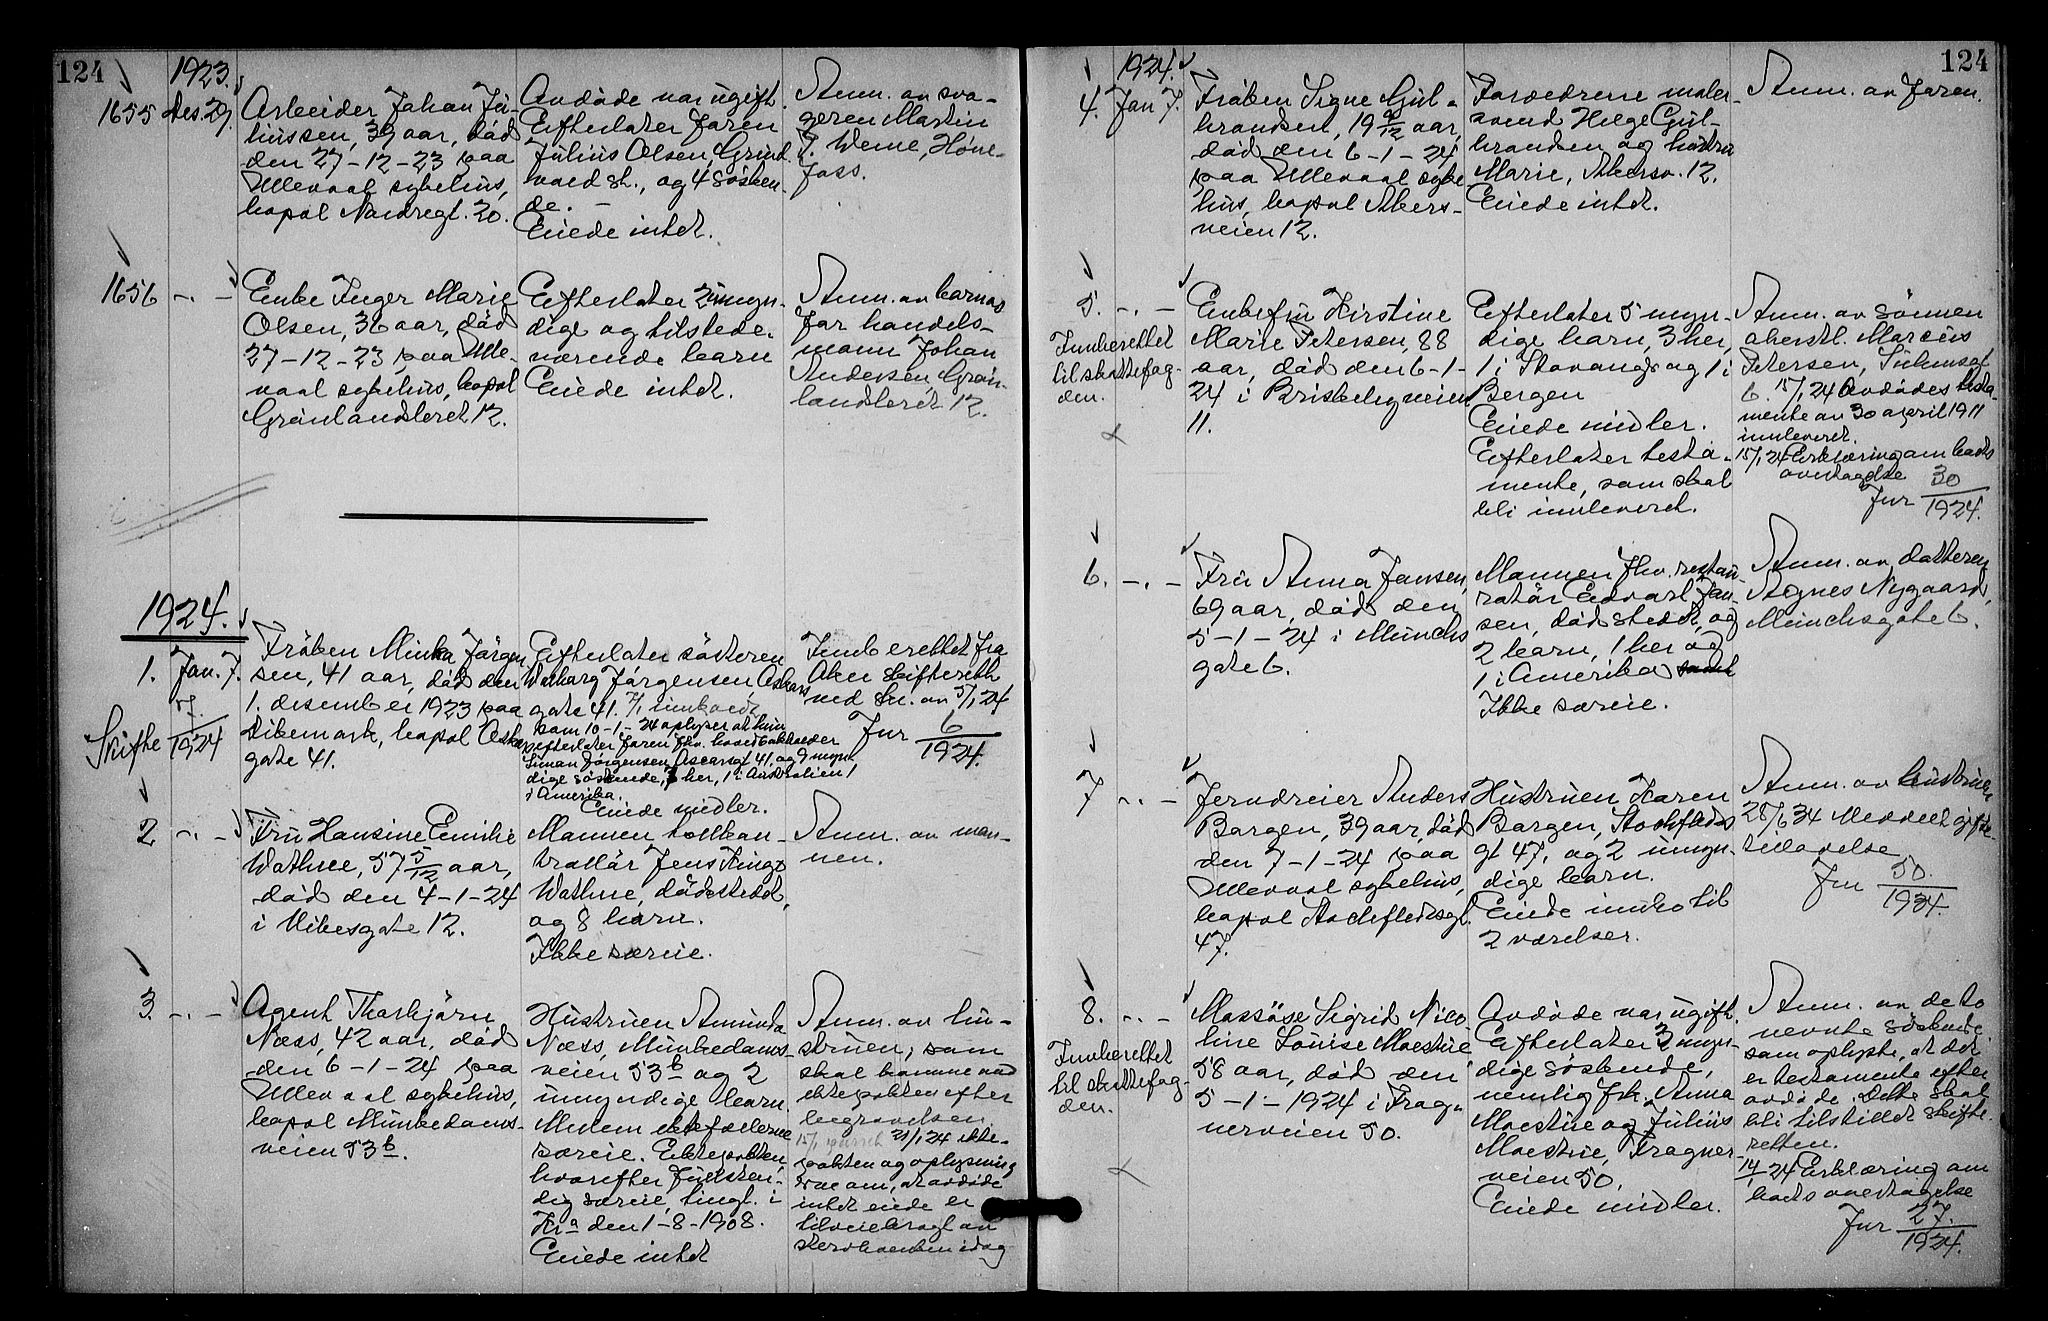 124
1923.
1655 Des. 29.
Arbeider Johan Ju-
liussen, 39 aar, död
den 27-12-23 paa
Ullevaal sykehus,
bopæl Nordregt. 20.
Avdöde var ugift.
Efterlater faren
Julius Olsen, Grind
vold st., og 4 sösken
de. -
Eiede intet.
Anm. av svo-
geren Martin
Weme, Höne-
foss.
1656 -.-
Enke Inger Marie
Olsen, 36 aar, död
27-12-23 paa Ulle-
vaal sykehus, bopæl
Grönlandsleret 12.
Efterlater 2 umyn-
dige og tilstede-
værende barn
Eiede intet.
Anm. av barnas
far handels-
mann Johan
Andersen, Grön-
landsleret 12.
1924.
1. Jan. 7.
Skifte 57/1924
Fröken Minka Jörgen
sen, 41 aar, död den
1. desember 1923 paa
Dikemark, bopæl Oskars
gate 41.
Efterlater sösteren
Walborg Jörgensen, Oskars
gate 41. 7/1 innkaldt
som 10-1-24 oplyser at hun
efterlater faren fhv. hovedbokholder
Simon Jörgensen, Oscarsgt 41, og 9 myn
dige söskende, 7 her, 1 i Australien 1
i Amerika.
Eiede midler.
Innberettet fra
Aker skifterett
ved skr. av 5/1 24
Jnr 6/1924.
2 -.-
Fru Hansine Emilie
Wathne, 57 5/12 aar,
död den 4-1-24
i Vibesgate 12.
Mannen tollkon-
trollör Jens Kingo
Wathne, dödsstedet,
og 8 barn.
Ikke særeie.
Anm. av man-
nen.
3. -.-
Agent Thorbjörn
Næss, 42 aar, död
den 6-1-24 paa
Ullevaal sykehus,
bopæl Munkedams-
veien 53b.
Hustruen Amunda
Næss, Munkedams-
veien 53b og 2
umyndige barn.
Mellem ektefellerne
særeie. Ektepakten,
hvorefter fuldsten-
dig særeie, tingl. i
Kra den 1-8-1908.
Eiede intet
Anm. av hu-
struen, som
skal komme med
ektepakten efter
begravelsen.
15/1 21/1 24 ekte-
pakten og oplysning
om, at avdöde
intet eiede er
tilveiebragt av
idag
124
1924.
4. Jan 7.
Fröken Signe Gul-
brandsen, 19 9/12 aar,
död den 6-1-24
paa Ullevaal syke
hus, bopæl Akers-
veien 12.
Foreldrene maler-
svend Helge Gul-
brandsen og hustru
Marie, Akersv. 12.
Eiede intet.
Anm. av faren.
5. -.-
Innberettet
til skattefog-
den.
Enkefru Kirstine
Marie Petersen, 88
aar, död den 6-1-
24 i Briskebyveien
11.
Efterlater 5 myn-
dige barn, 3 her,
1 i Stavanger og 1 i
Bergen
Eiede midler.
Efterlater testa-
mente, som skal
bli innleveret.
Anm. av sönnen
oberstl. Marcus
Petersen,
6. 15/1 24 Avdödes testa-
mente av 30 april 1911
innleveret.
15/1 24 Erklæring om boets
overtagelse
Jnr 30/1924.
6. -.-
Fru Anna Jansen,
69 aar, död den
5-1-24 i Munchs
gate 6.
Mannen fhv. restau-
ratör Edvard Jan-
sen, dödsstedet, og
2 barn, 1 her og
1 i Amerika samt
Ikke særeie.
Anm. av datteren
Agnes Nygaard,
Munchsgate 6.
7 -.-
Jerndreier Anders
Borgen, 39 aar, död
den 7-1-24 paa
Ullevaal sykehus,
bopæl Stockfledsgt.
47.
Hustruen Karen
Borgen, Stockfleds
gt 47, og 2 umyn-
dige barn.
Eiede innbo til
2 værelser.
Anm. av hustruen
28/6 34 Meddelt gifte-
tilladelse
Jnr 50/1934.
8. -.-
Innberettet
til skattefog-
den.
Massöse Sigrid Nico
line Louise Moestue
58 aar, död den
5-1-1924 i Frog-
nerveien 50.
Avdöde var ugift.
Efterlater 2 myn-
dige söskende,
nemlig frk. Anna
Moestue og Julius
Moestue, Frogner-
veien 50.
Eiede midler.
Anm. av de to
nevnte söskende
som oplyste, at det
er testamente efter
avdöde. Dette skal
bli tilstillet skifte-
retten.
14/1 24 Erklæring om
boets overtagelse
Jnr 27/1924.